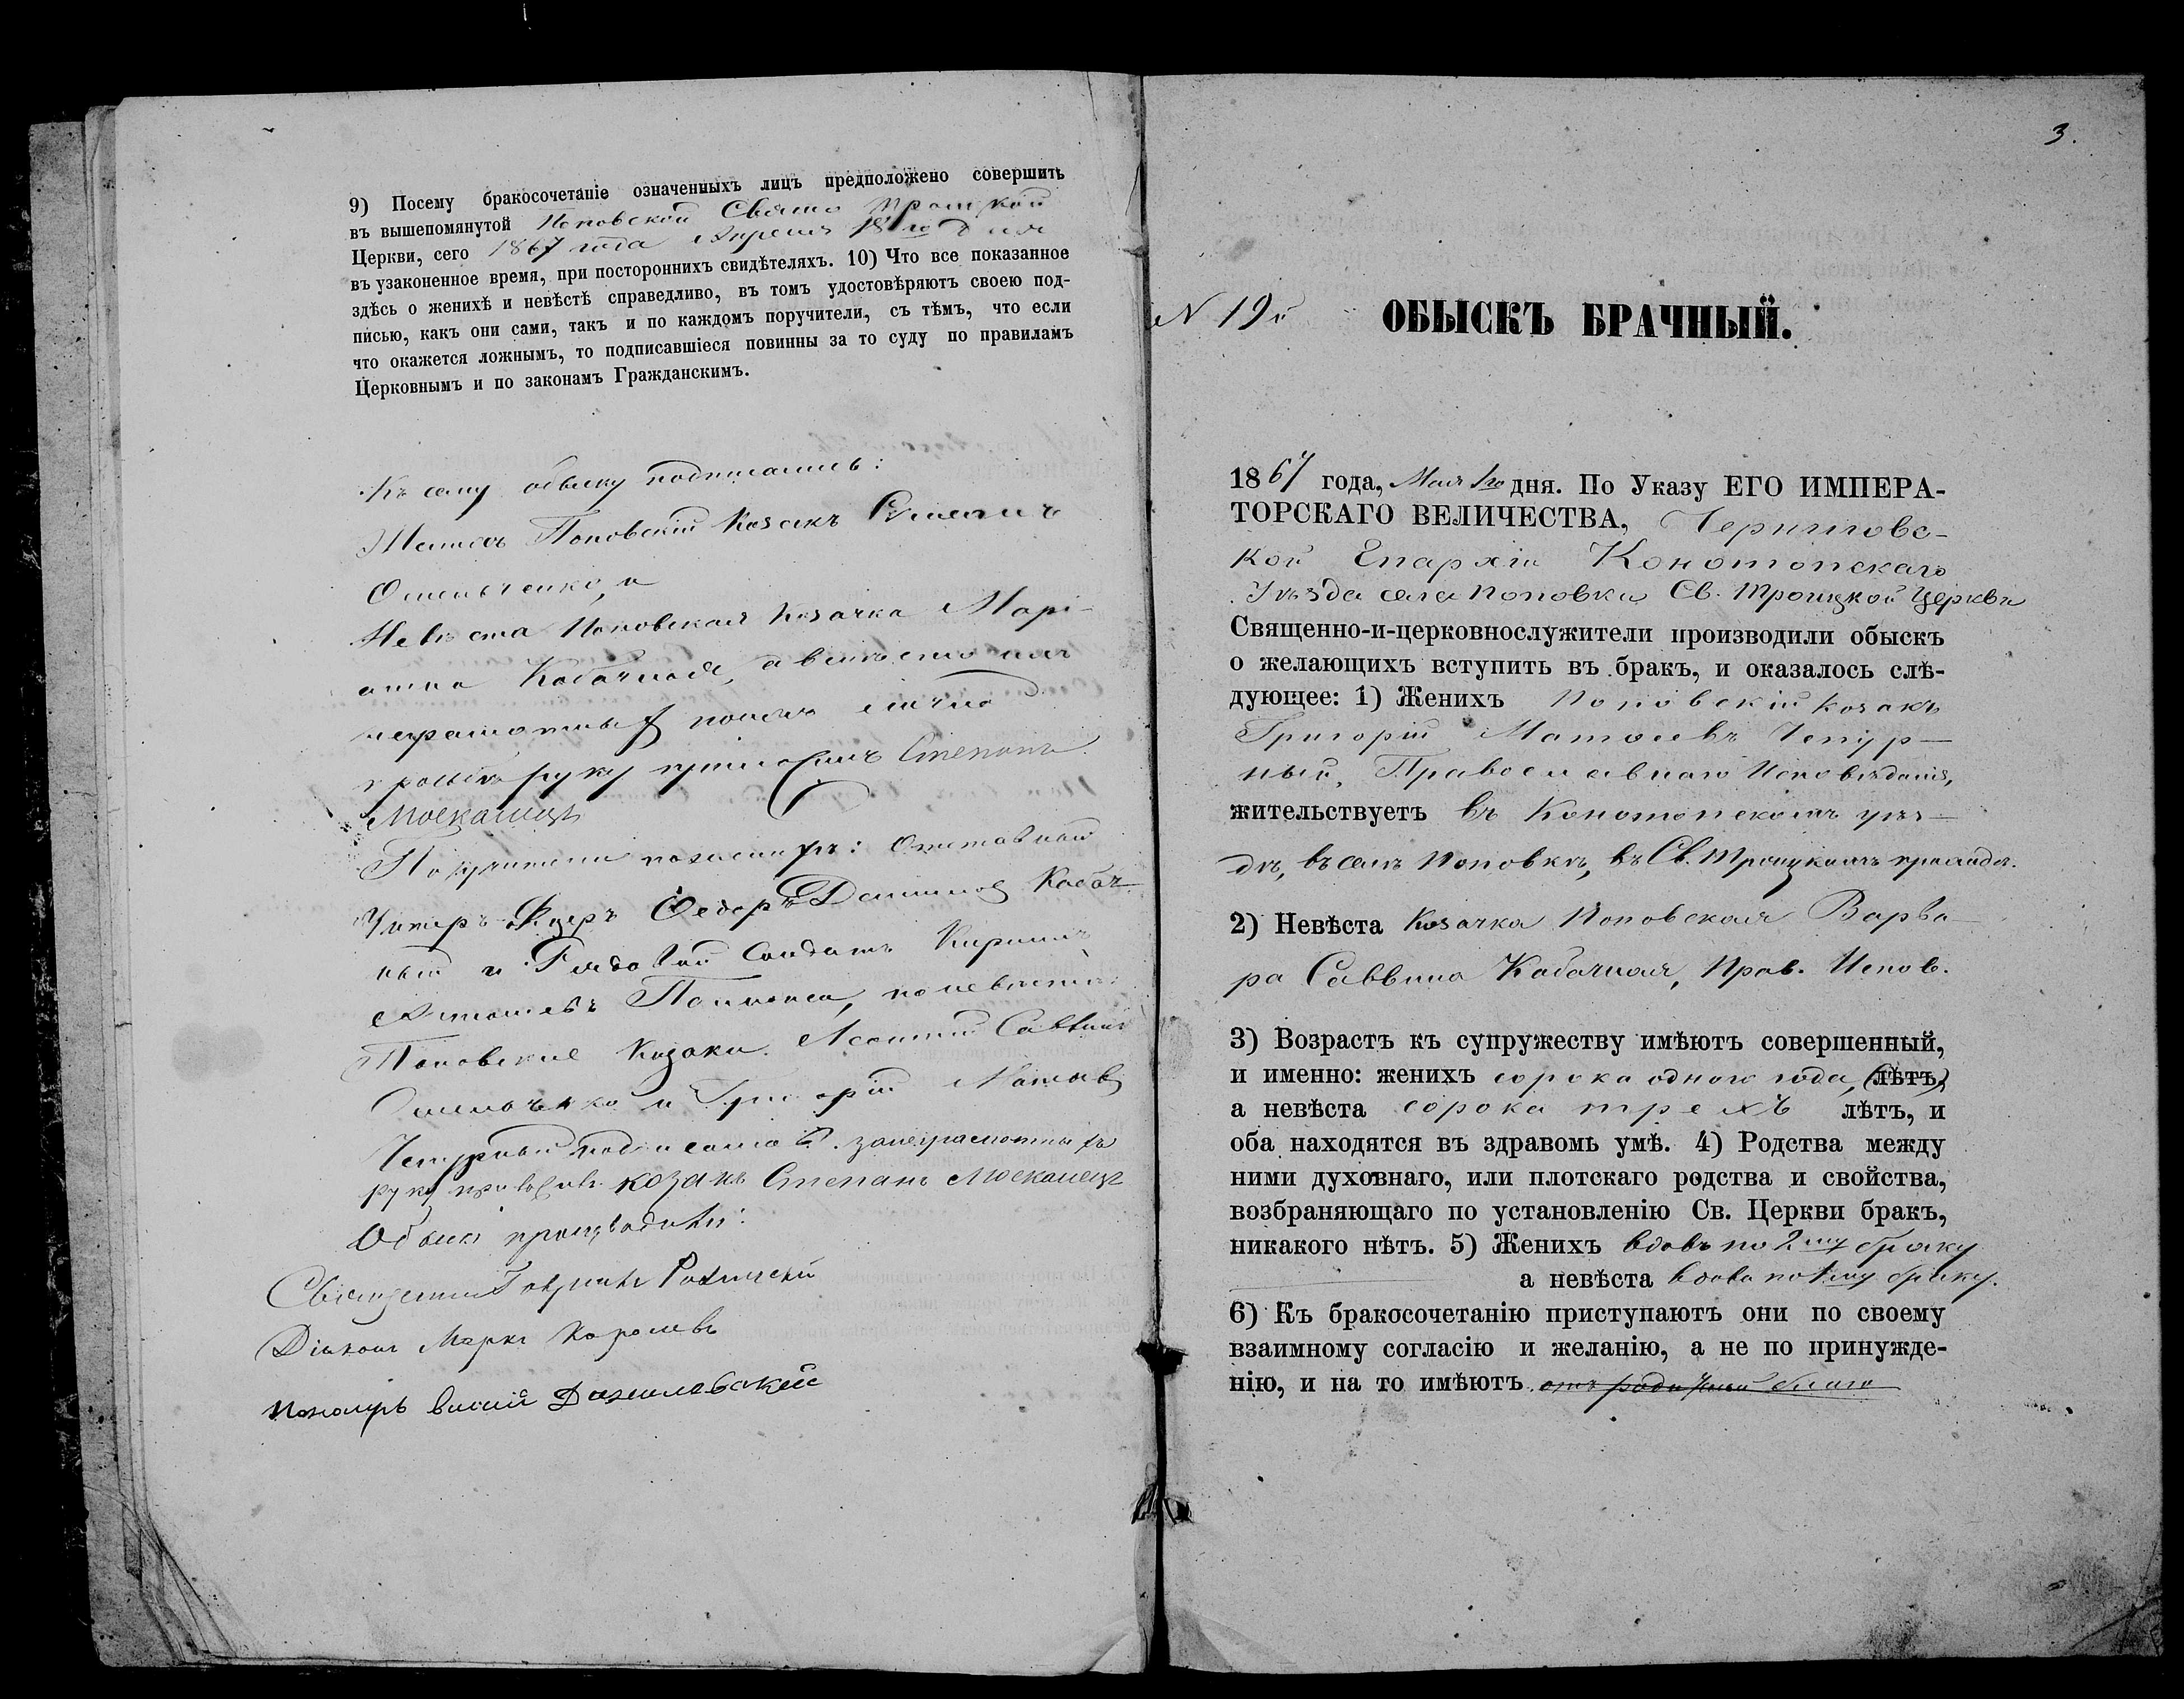 9) Посему бракосочетаніе означенныхъ лицъ предположено совершить
въ вышепомянутой Поповской Свято Троицкой
Церкви, сего 1867 года Апреля 18го дня
въ узаконенное время, при постороннихъ свидѣтеляхъ. 10) Что все показанное
здѣсь о женихѣ и невѣстѣ справедливо, въ томъ удостовѣряютъ своею под-
писью, какъ они сами, такъ и по каждомъ поручители, съ тѣмъ, что если
что окажется ложнымъ, то подписавшіеся повинны за то суду по правиламъ
Церковнымъ и по законамъ Гражданскимъ.
Къ сему обыску подписались:
Женихъ Поповскій Козакъ
Омельченко, и
Невѣста Поповская Козачка Марі-
Кабачная, а вмѣсто ихъ
неграмотныхъ
руку приложилъ Степанъ
Москалецъ
Поручители по женихѣ: Отставной
Унтеръ Ѳедоръ Кабач-
ный и Рядовой Солдатъ Кирилъ
по невѣстѣ:
Поповские Козаки Леонтій Саввинъ
Омельченко и Григорій Матвѣевъ
Чепурный за неграмотныхъ
руку козакъ Степанъ Москалецъ
Обыскъ производили:
Священникъ Гавріилъ
Діаконъ Маркъ Королевъ
Пономарь
3.
N 19й
ОБЫСКЪ БРАЧНЫЙ.
1867 года, Мая 1го дня. По Указу ЕГО ИМПЕРА-
ТОРСКАГО ВЕЛИЧЕСТВА, Черниговс-
кой Епархіи Конотопскаго
Уѣзда села Поповки Св. Троицкой Церкви
Священно-и-церковнослужители производили обыскъ
о желающихъ вступить въ бракъ, и оказалось слѣ-
дующее: 1) Женихъ Поповскій козакъ
Григорій Матвѣевъ Чепур-
ный, Православнаго Исповѣданія,
жительствуетъ въ Конотопскомъ уѣз-
дѣ, въ селѣ Поповкѣ, въ Св. Троицкомъ приходѣ.
2) Невѣста Козачка Поповская Варва-
ра Саввина Кабачная, Прав. Испов.
3) Возрастъ къ супружеству имѣютъ совершенный,
и именно: женихъ сорока одного года, (лѣтъ,)
а невѣста сорока трехъ лѣтъ, и
оба находятся въ здравомъ умѣ. 4) Родства между
ними духовнаго, или плотскаго родства и свойства,
возбраняющаго по установленію Св. Церкви бракъ,
никакого нѣтъ. 5) Женихъ вдовъ по 2му браку
а невѣста вдова по 1му браку.
6) Къ бракосочетанію приступаютъ они по своему
взаимному согласію и желанію, а не по принужде-
нію, и на то имѣютъ